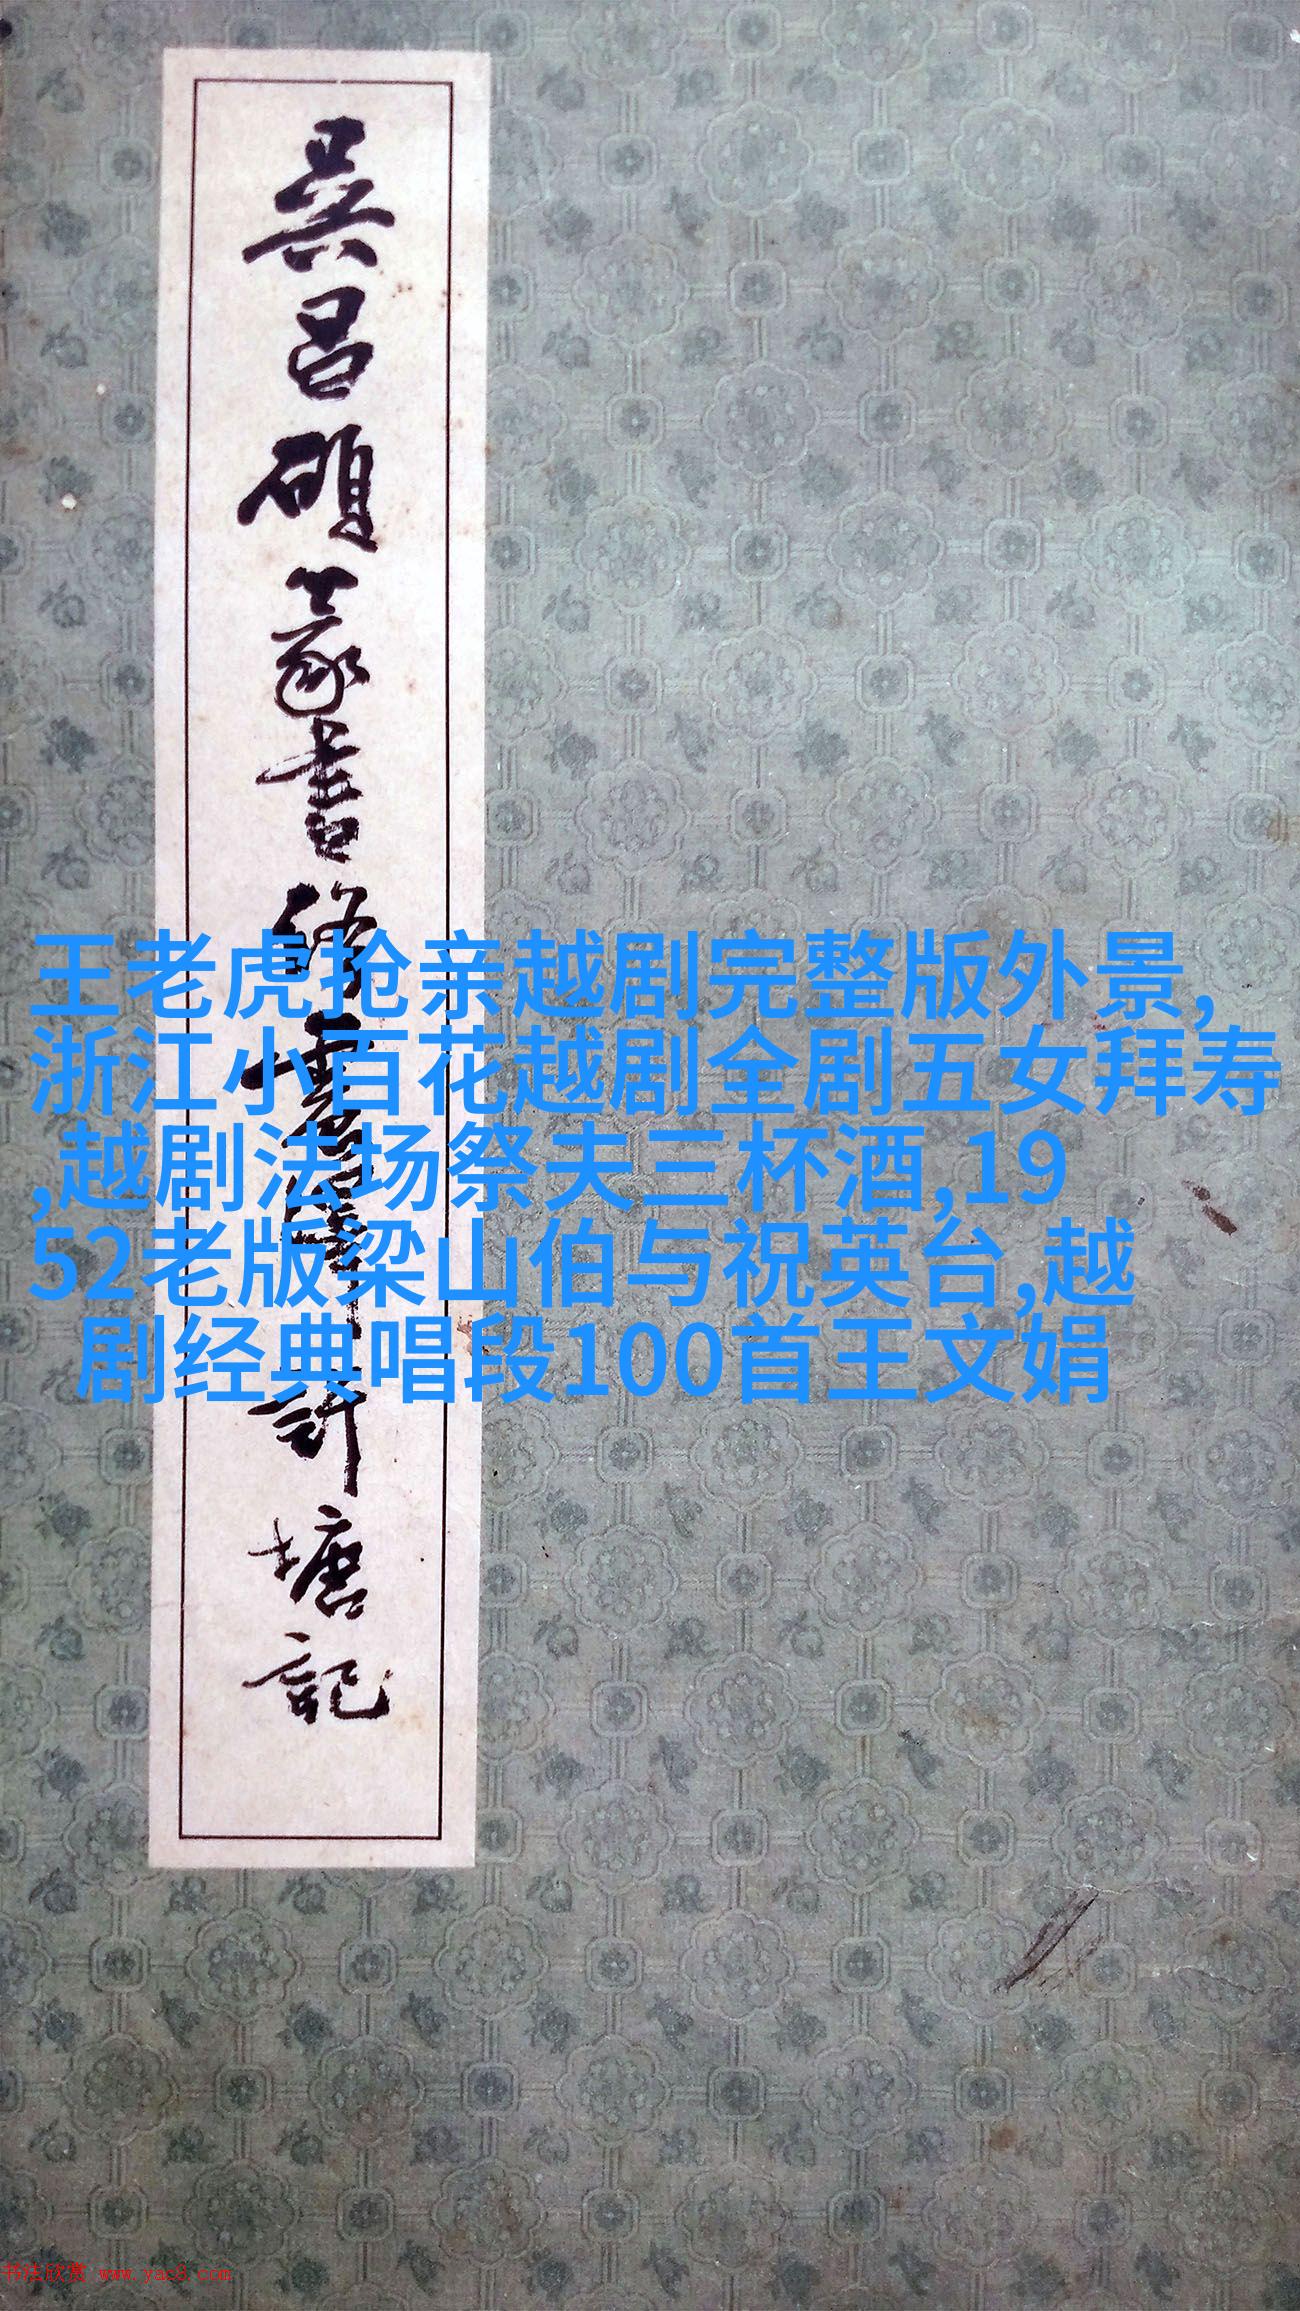 吴昌硕篆书修震泽许塘記
王老虎抢亲越剧完整版外景,
浙江小百花越剧全剧五女拜寿
,越剧法场祭夫三杯酒,19
52老版梁山伯与祝英台,越
剧经典唱段100首王文娟
书法欣赏 www.yac8.com